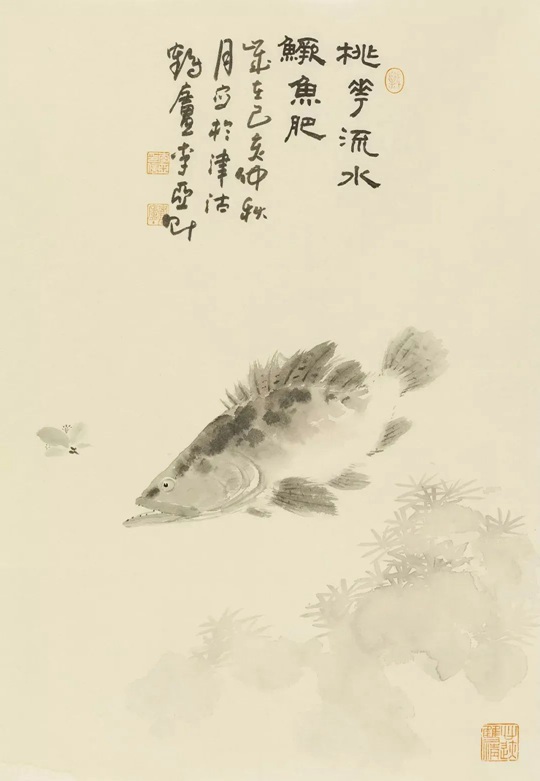 桃花流水
鱖魚肥
歲在己亥仲秋
月寫於津沽
鶴廬李亞